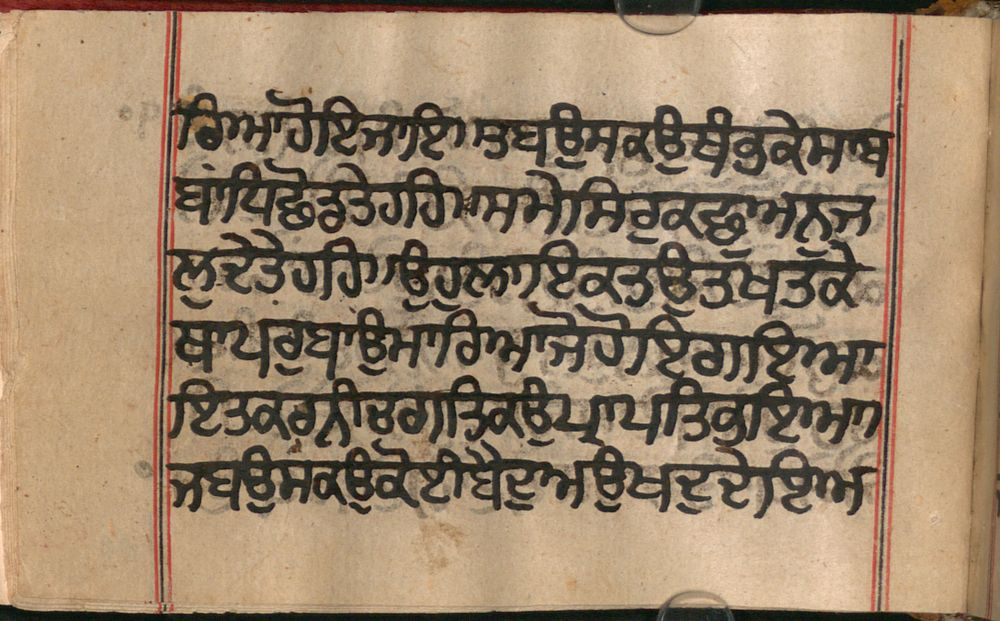 ਰਿਆਹੋਇਜਾਇ।ਤਬਉਸਕਉਬੰਕੁਕੇਸਾਬ
ਬਾਂਧਿਛੋਡਤੇਹਹਿ।ਸਮੇਸਿਰੁਕਛੂਅਨੁਜ
ਲੁਦੇਤੇਹਹਿ।ਉਹੁਲਾਇਕਤਉਤਖਤਕੇ
ਥਾਪਰੁਬਾਉਮਾਰਿਆਜੋਹੋਇਗਇਆ
ਇਤਕਰਨੀਚਗਤਿਕਉਪ੍ਰਾਪਤਿਭੁਇਆ।
ਜਬਉਸਕਉਕੋਈਬੈਦੁਅਉਖਦੁਦੇਇਅ